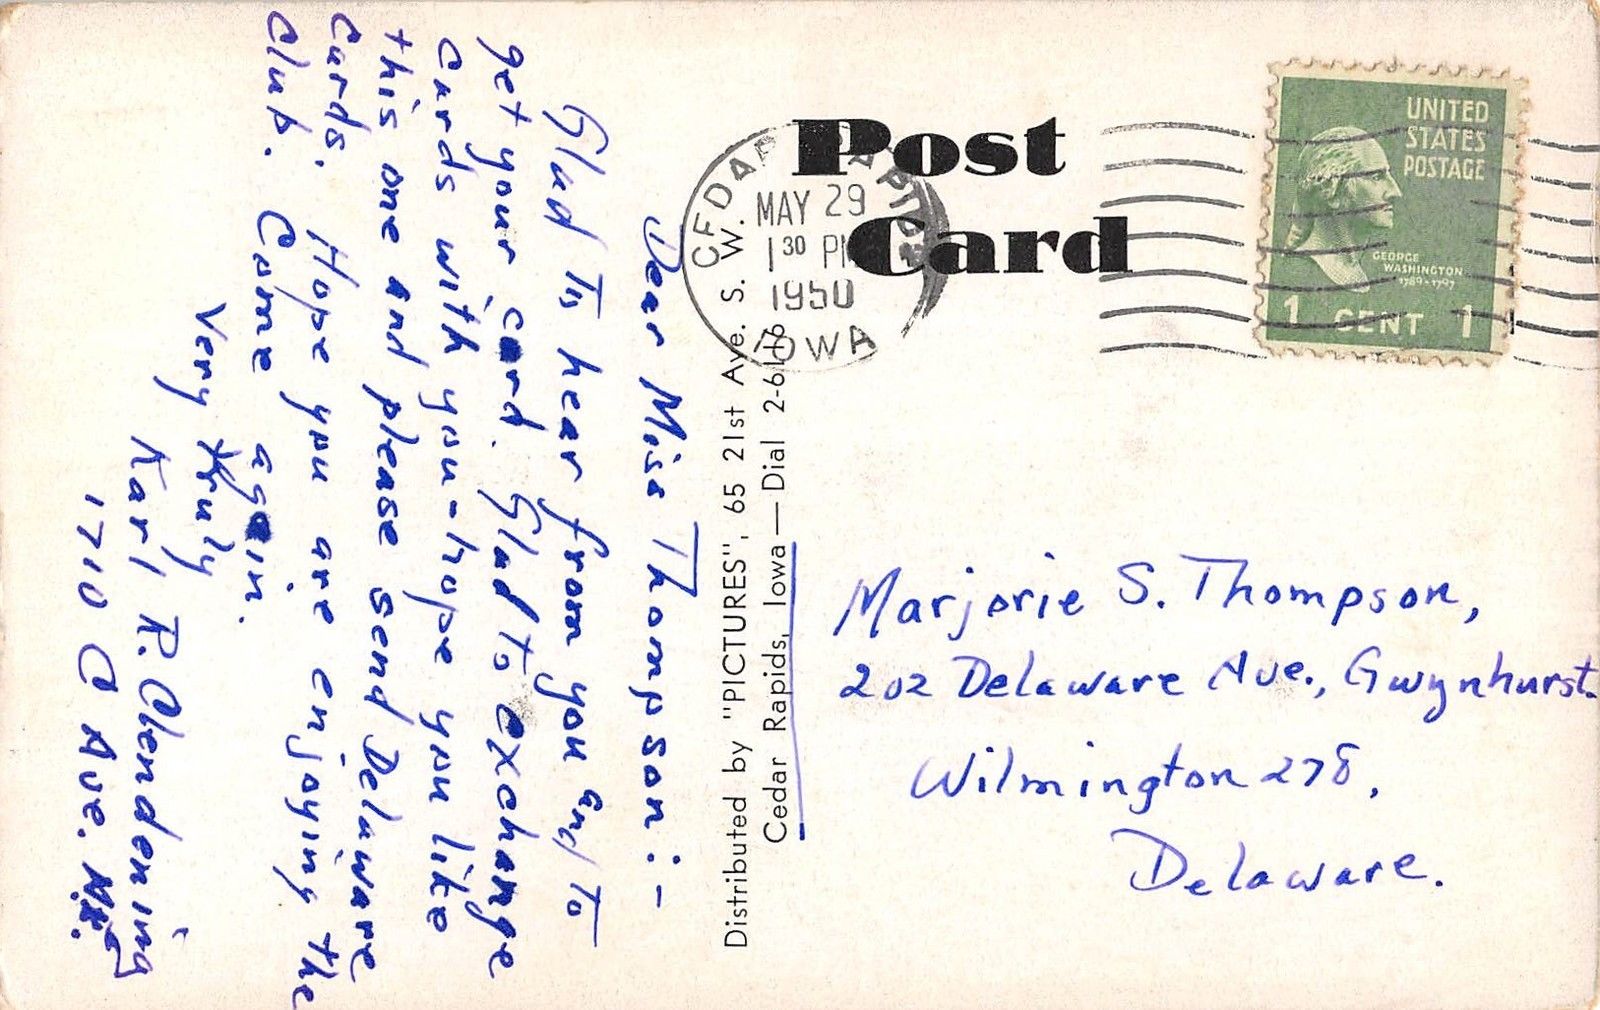 Dear Miss Thompson:-
Glad To hear from you and To
get your card. Glad to exchange
cards with you-hope you like
this one and please send Delaware
Cards. Hope you are enjoying the
Club. Come again.
Very truly
Karl R. Clendening
1710 C Ave. N.E.
Distributed by "PICTURES", 65 21st Ave. S. W.
Cedar Rapids, Iowa—Dial 2-6116
Post
Card
CEDAR RAPIDS
MAY 29
1 30 PM
1950
IOWA
UNITED
STATES
POSTAGE
GEORGE
WASHINGTON
1789-1797
1 CENT 1
Marjorie S. Thompson,
202 Delaware Ave., Gwynhurst.
Wilmington 278,
Delaware.